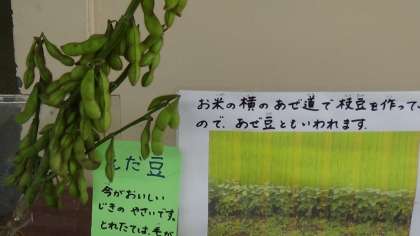 お米の横のあぜ道で枝豆を作って
ので、あぜ豆ともいわれます。
だ豆
今がおいしい
じきのやさいです。
とれたては、毛が